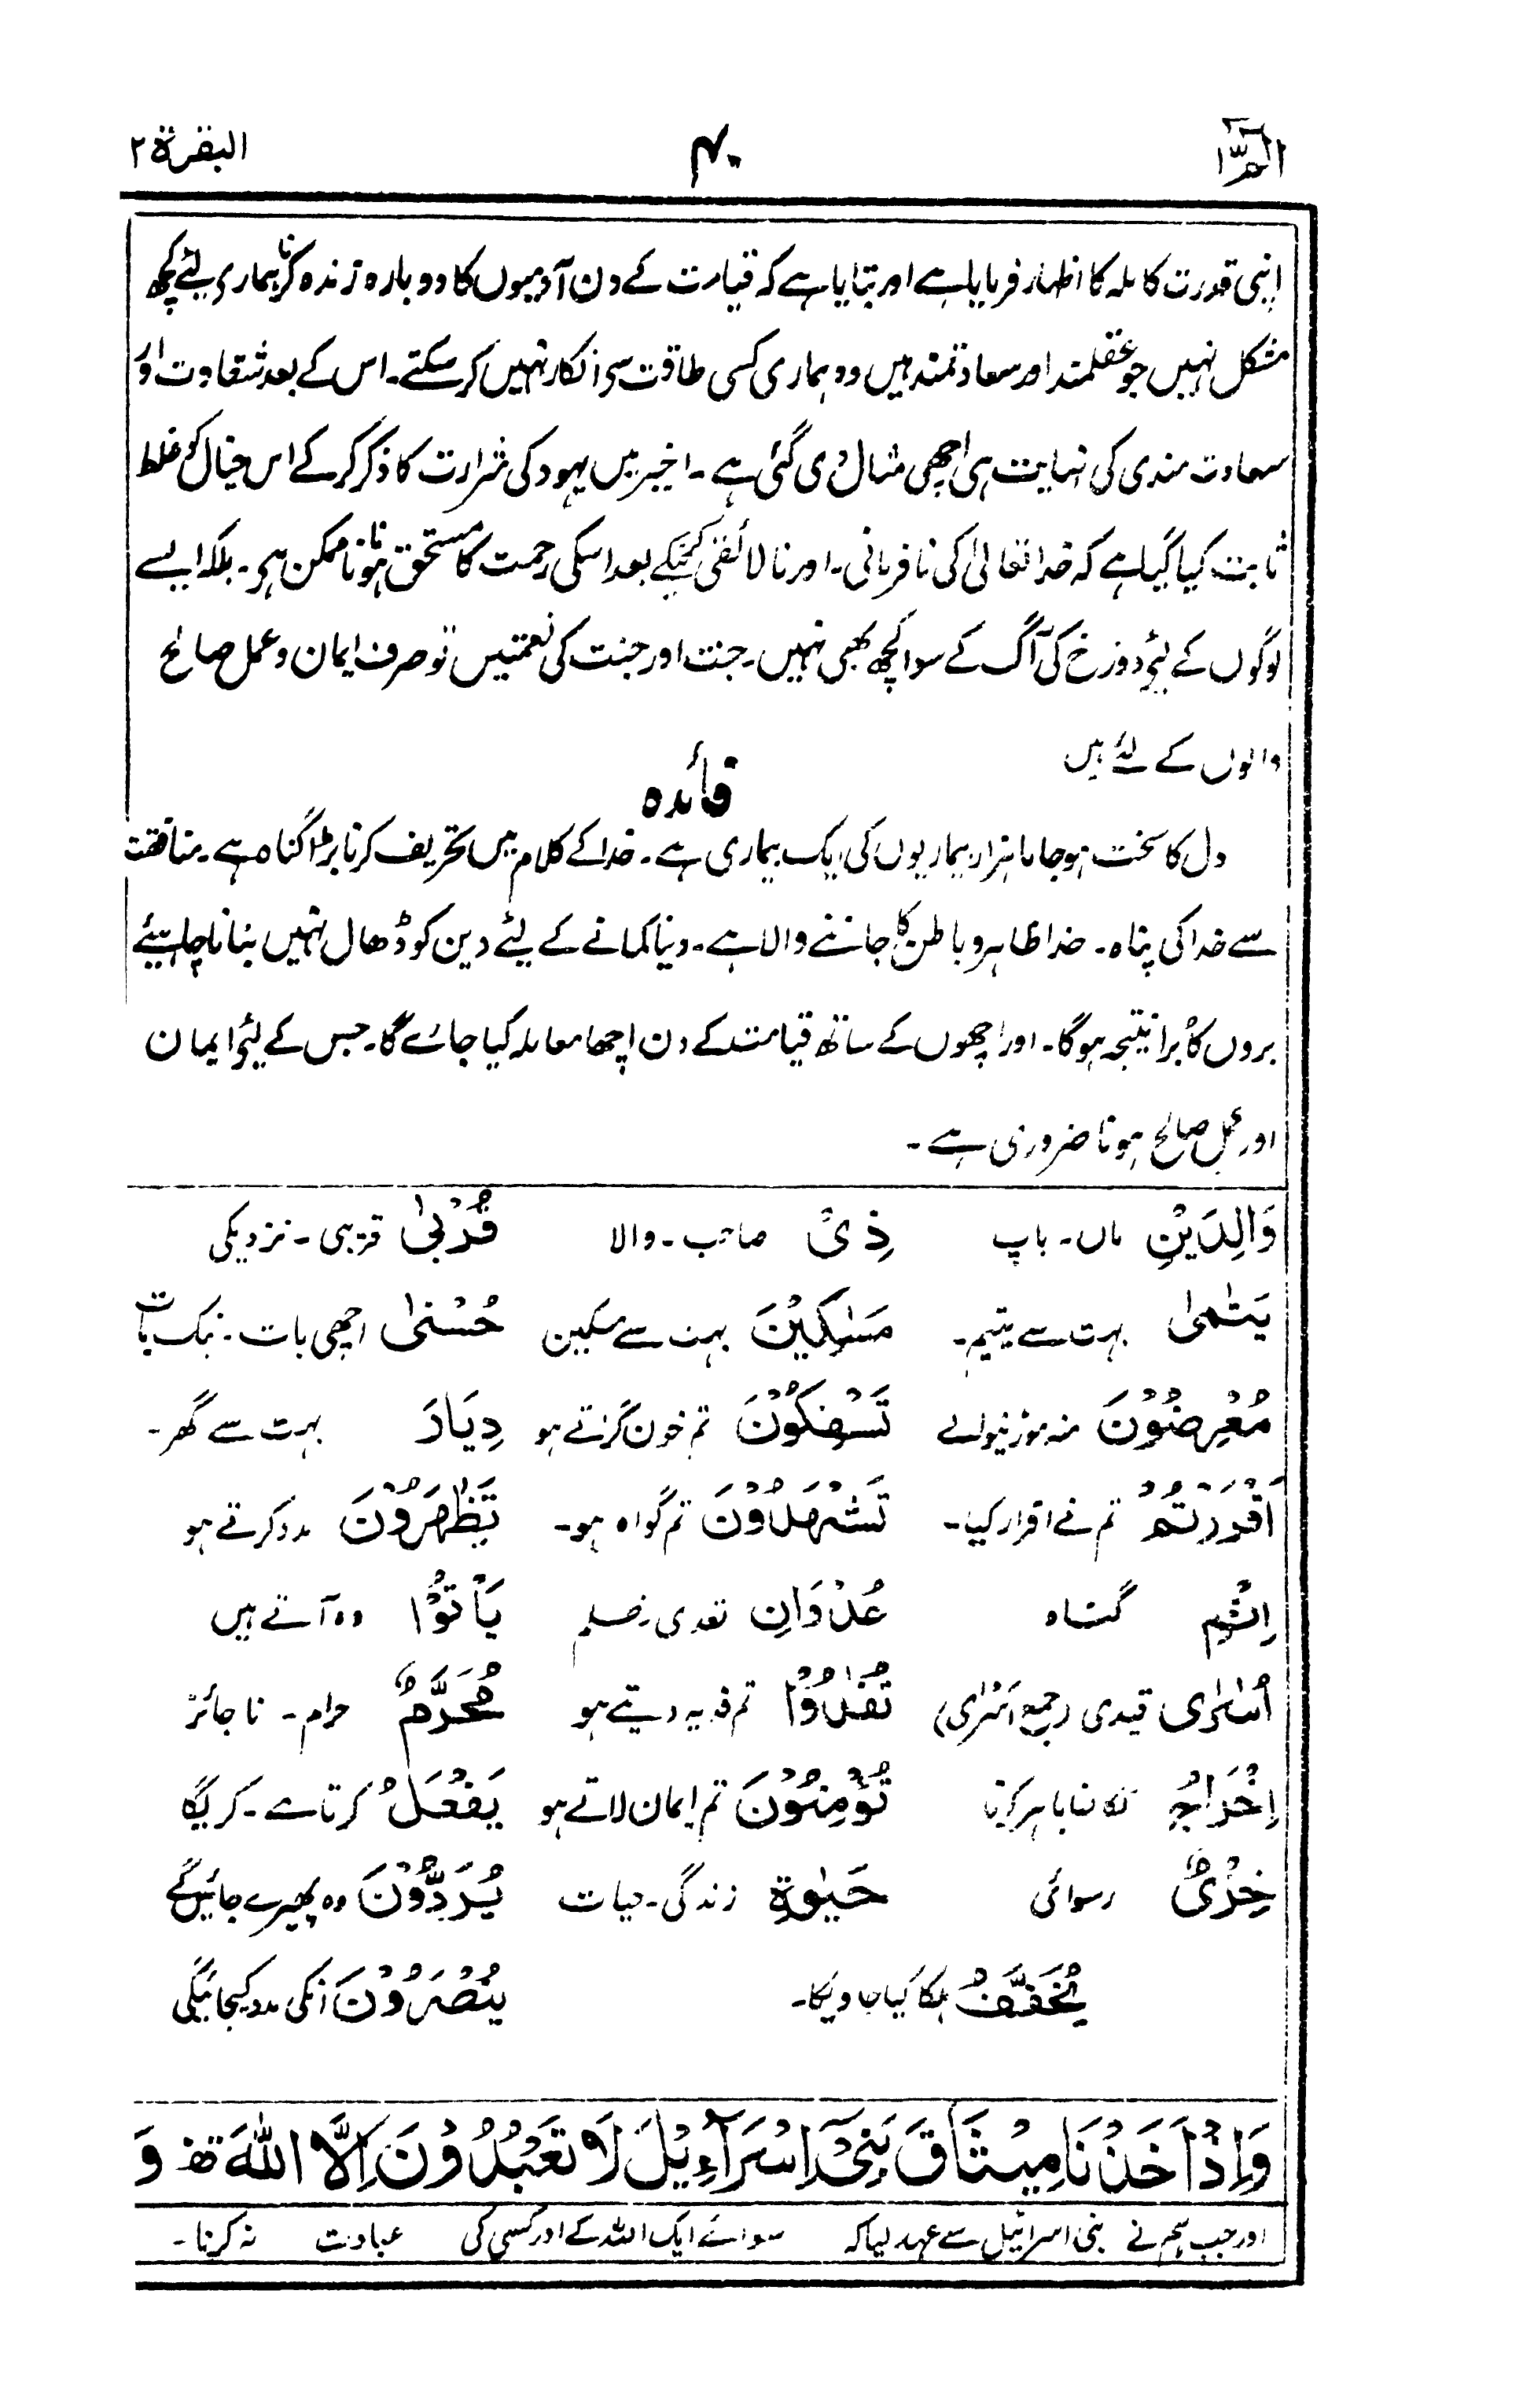 الٓمّٓ ۱
۴۰
البقرۃ ۲
اپنی قدرت کاملہ کا اظہار فرمایا ہے اور بتایا ہے کہ قیامت کے دن آدمیوں کا دوبارہ زندہ کرنا ہماری لئے کچھ
مشکل نہیں جو عقلمند اور سعادتمند ہیں وہ ہماری کسی طاقت سے انکار نہیں کر سکتے۔ اس کے بعد شقاوت اور
سعادت مندی کی نہایت ہی اچھی مثال دی گئی ہے ۔ اخیر میں یہود کی شرارت کا ذکر کر کے اس خیال کو غلط
ثابت کیا گیا ہے کہ خدا تعالیٰ کی نافرمانی۔ اور نالائقی کے بعد اسکی رحمت کا مستحق ہونا ناممکن ہے۔ بلکہ ایسے
لوگوں کے لئے دوزخ کی آگ کے سوا کچھ بھی نہیں۔ جنت اور جنت کی نعمتیں تو صرف ایمان و عمل صالح
والوں کے لئے ہیں
فائدہ
دل کا سخت ہو جانا ہزار بیماریوں کی ایک بیماری ہے۔ خدا کے کلام میں تحریف کرنا بڑا گناہ ہے۔ منافقت
سے خدا کی پناہ۔ خدا ظاہر و باطن کا جاننے والا ہے۔ دنیا کمانے کے لئے دین کو ڈھال نہیں بنانا چاہیئے
بروں کا بُرا نتیجہ ہوگا۔ اور اچھوں کے ساتھ قیامت کے دن اچھا معاملہ کیا جائے گا۔ جس کے لئے ایمان
اور عمل صالح ہونا ضروری ہے ۔
وَالِدَیْنِ ماں۔ باپ ذِیْ صاحب۔ والا قُرْبٰی قریبی۔ نزدیکی
یَتٰمٰی بہت سے یتیم۔ مَسٰکِیْنَ بہت سے مسکین حُسْنٰی اچھی بات۔ نیک بات
مُعْرِضُوْنَ منہ موڑنیوالے تَسْفِکُوْنَ تم خون گراتے ہو دِیَارَ بہت سے گھر۔
اَقْرَرْتُمْ تم نے اقرار کیا۔ تَشْهَدُوْنَ تم گواہ ہو۔ تَظٰهَرُوْنَ مدد کرتے ہو
اِثْمِ گناہ عُدْوَانِ تعدی۔ ظلم یَأْتُوْا وہ آتے ہیں
اُسٰرٰی قیدی (جمع اَسْرٰی) تُفٰدُوْا تم فدیہ دیتے ہو مُحَرَّمٌ حرام۔ ناجائز
اِخْرَاجُ نکالنا باہر کرنا تُؤْمِنُوْنَ تم ایمان لاتے ہو یَفْعَلُ کرتا ہے۔ کریگا
خِزْیٌ رسوائی حَیٰوةِ زندگی۔ حیات یُرَدُّوْنَ وہ پھیرے جائیں گے
یُخَفَّفُ ہلکا کیا جاویگا۔ یُنْصَرُوْنَ انکی مدد کیجائیگی
وَاِذْ اَخَذْنَا مِیْثَاقَ بَنِیْٓ اِسْرَآءِیْلَ لَا تَعْبُدُوْنَ اِلَّا اللّٰهَ وَ
اور جب ہم نے بنی اسرائیل سے عہد لیا کہ سوائے ایک اللہ کے اور کسی کی عبادت نہ کرنا۔